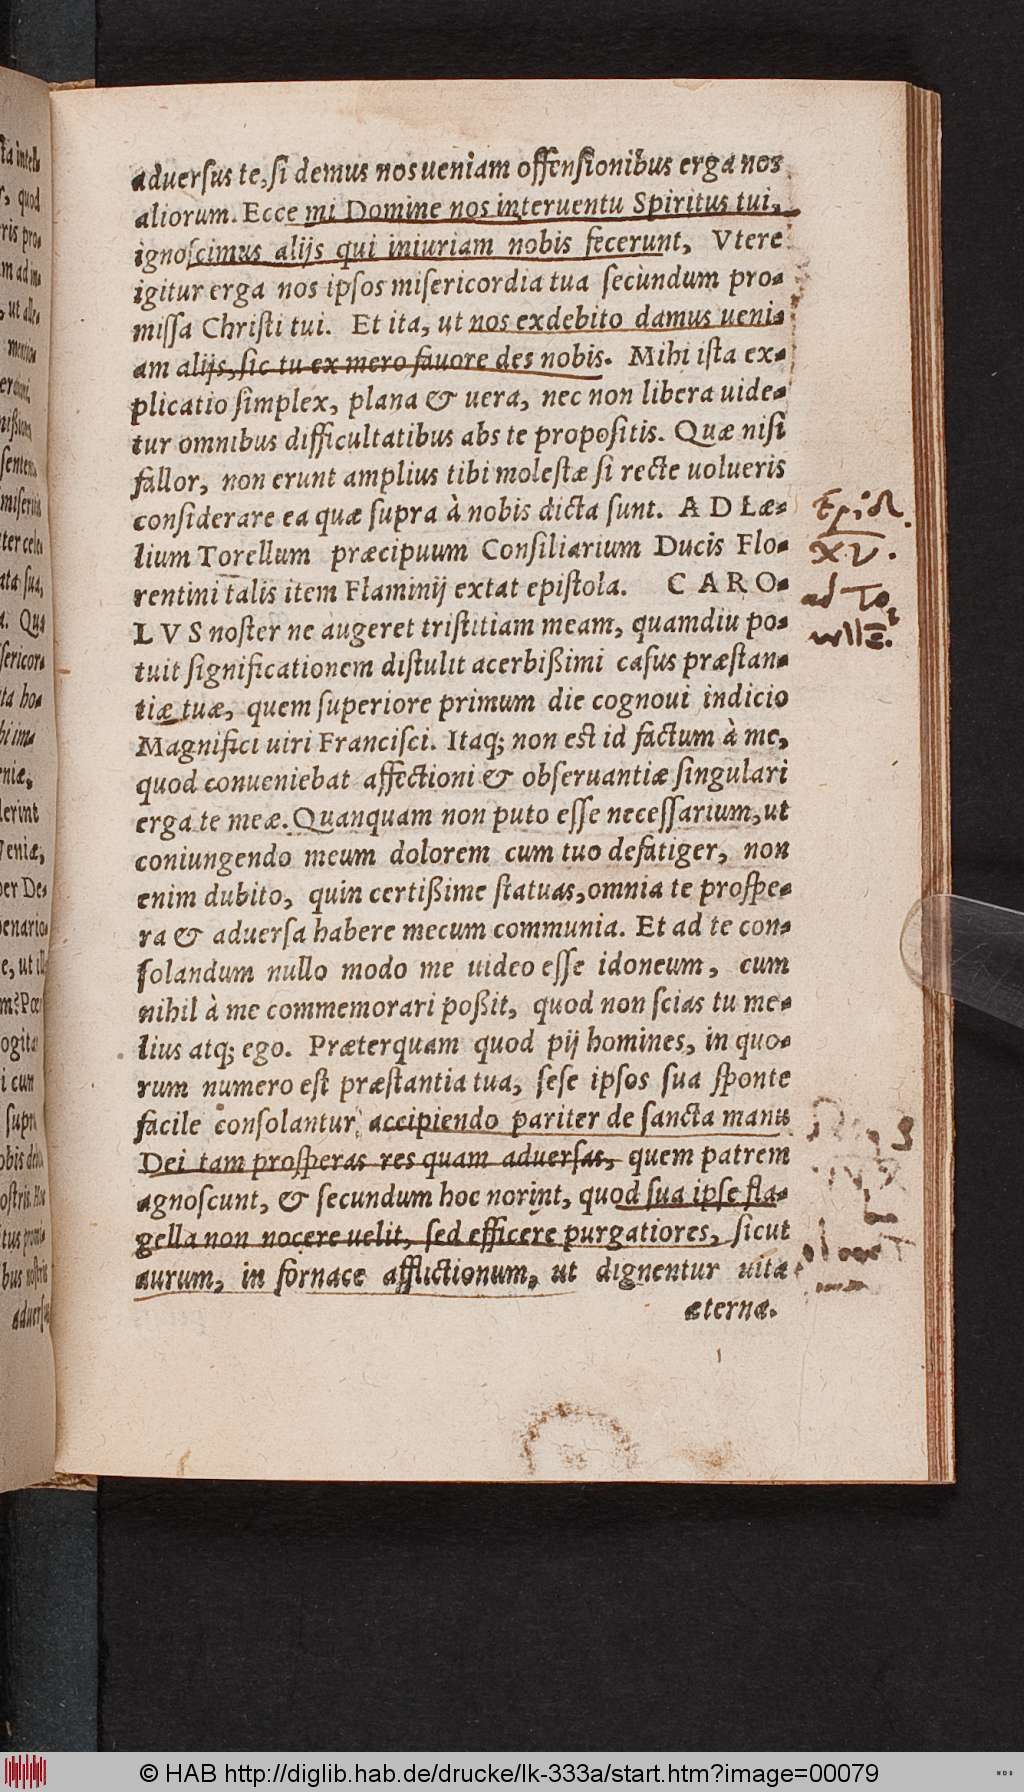 adversus te, si demus nos veniam offensionibus erga nos
aliorum. Ecce mi Domine nos interventu Spiritus tui,
ignoscimus alijs qui iniuriam nobis fecerunt, Vtere
igitur erga nos ipsos misericordia tua secundum pro-
missa Christi tui. Et ita, ut nos ex debito damus ueni-
am alijs, sic tu ex mero favore des nobis. Mihi ista ex-
plicatio simplex, plana & uera, nec non libera uide-
tur omnibus difficultatibus abs te propositis. Quæ nisi
fallor, non erunt amplius tibi molestæ si recte uolueris
considerare ea quæ supra à nobis dicta sunt. A D Læ-
lium Torellum præcipuum Consiliarium Ducis Flo-
rentini talis item Flaminij extat epistola. C A R O-
L V S noster ne augeret tristitiam meam, quamdiu po-
tuit significationem distulit acerbißimi casus præstan-
tiæ tuæ, quem superiore primum die cognovi indicio
Magnifici uiri Francisci. Itaq; non est id factum à me,
quod conveniebat affectioni & observantiæ singulari
erga te meæ. Quanquam non puto esse necessarium, ut
coniungendo meum dolorem cum tuo defatiger, non
enim dubito, quin certißime statuas, omnia te prospe-
ra & adversa habere mecum communia. Et ad te con-
solandum nullo modo me uideo esse idoneum, cum
nihil à me commemorari poßit, quod non scias tu me-
lius atq; ego. Præterquam quod pij homines, in quo-
rum numero est præstantia tua, sese ipsos sua sponte
facile consolantur, accipiendo pariter de sancta manu
Dei tam prosperas res quam adversas, quem patrem
agnoscunt, & secundum hoc norint, quod sua ipse fla-
gella non nocere uelit, sed efficere purgatiores, sicut
aurum, in fornace afflictionum, ut dignentur uita
æternæ.
Epist.
XV.
ad To
© HAB http://diglib.hab.de/drucke/lk-333a/start.htm?image=00079